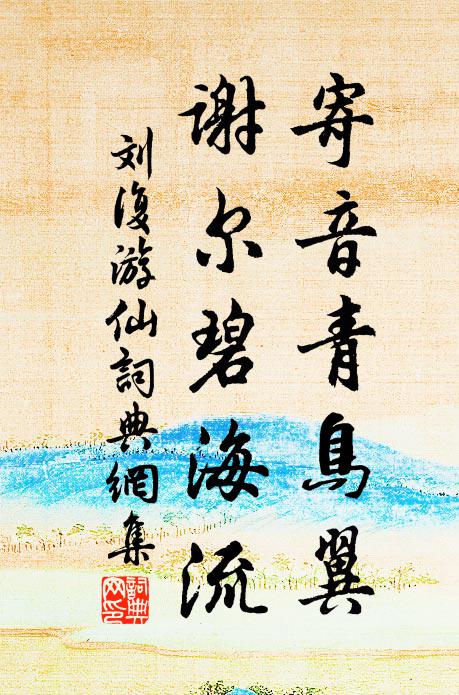 寄音青鳥翼
谢尔碧海流
刘復游仙詞典網集
詞典网印